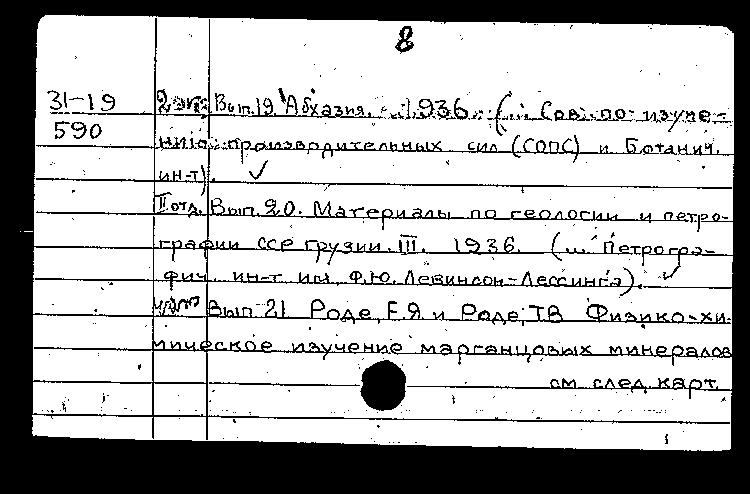 8
31-19 2 экз. Вып. 19 Абхазия. 1936. (... Сов. по изуче-
590
нию производительных сил (СОПС) и Ботанич.
ин-т). ✓
II отд. Вып. 20. Материалы по геологии и петро-
графии ССР Грузии. III. 1936. (... Петрогра-
фич. ин-т им. Ф.Ю. Левинсон-Лессинга). ✓
Вып 21 Роде, Е.Я. и Роде, Т.В Физико-хи-
мическое изучение марганцовых минералов
см след. карт.